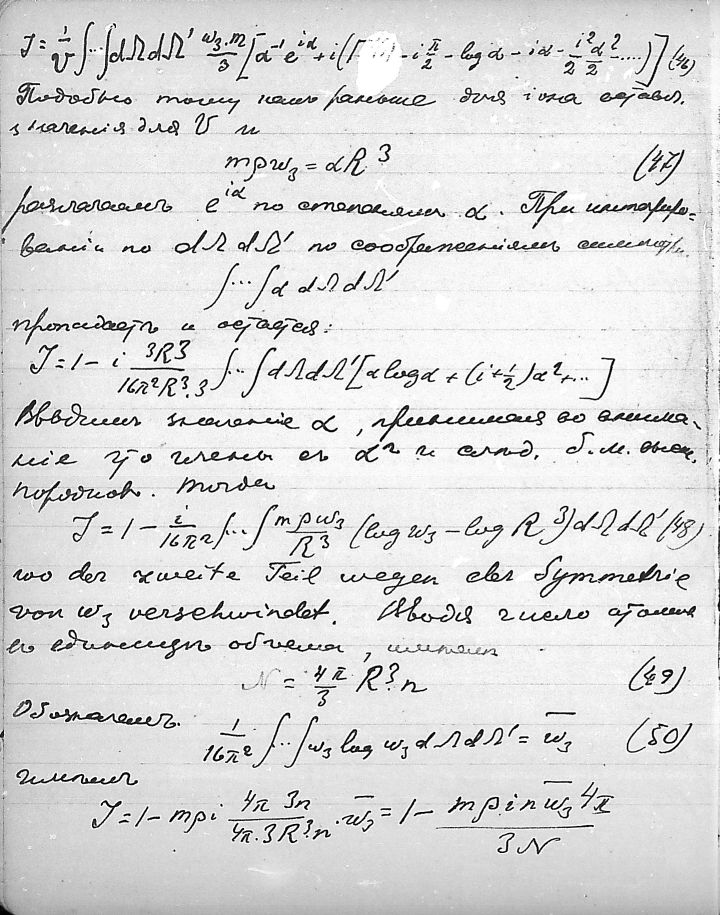 J = 1/V ∫...∫ dΩ dΩ' w₃.m/3 [α⁻¹ e^{iα} + i( - i π/2 - log α - iα - i²/2 α²/2 ....)] (46)
Подобно тому какъ раньше для оставл.
значенія для V и
mρw₃ = αR³ (47)
разлагаемъ e^{iα} по степенямъ α. При интегриро-
ваніи по dΩ dΩ' по соображеніямъ симметр.
∫...∫ α dΩ dΩ'
пропадаетъ и остается:
J = 1 - i 3R³/16π²R³.3 ∫...∫ dΩ dΩ' [α log α + (i + 1/2)α² + ...]
Вводимъ значеніе α, принимая во внима-
ніе что члены съ α² и слѣд. б.м. высш.
порядковъ. Тогда
J = 1 - i/16π² ∫...∫ mρw₃/R³ (log w₃ - log R³) dΩ dΩ' (48)
wo der zweite Teil wegen der Symmetrie
von w₃ verschwindet. Вводя число атомовъ
въ единицѣ объема, имѣемъ
N = 4π/3 R³ n (49)
Обозначаемъ
1/16π² ∫...∫ w₃ log w₃ dΩ dΩ' = w̄₃ (50)
имѣемъ
J = 1 - mρi 4π 3n/4π.3R³n . w̄₃ = 1 - mρ i n w̄₃ 4π/3N